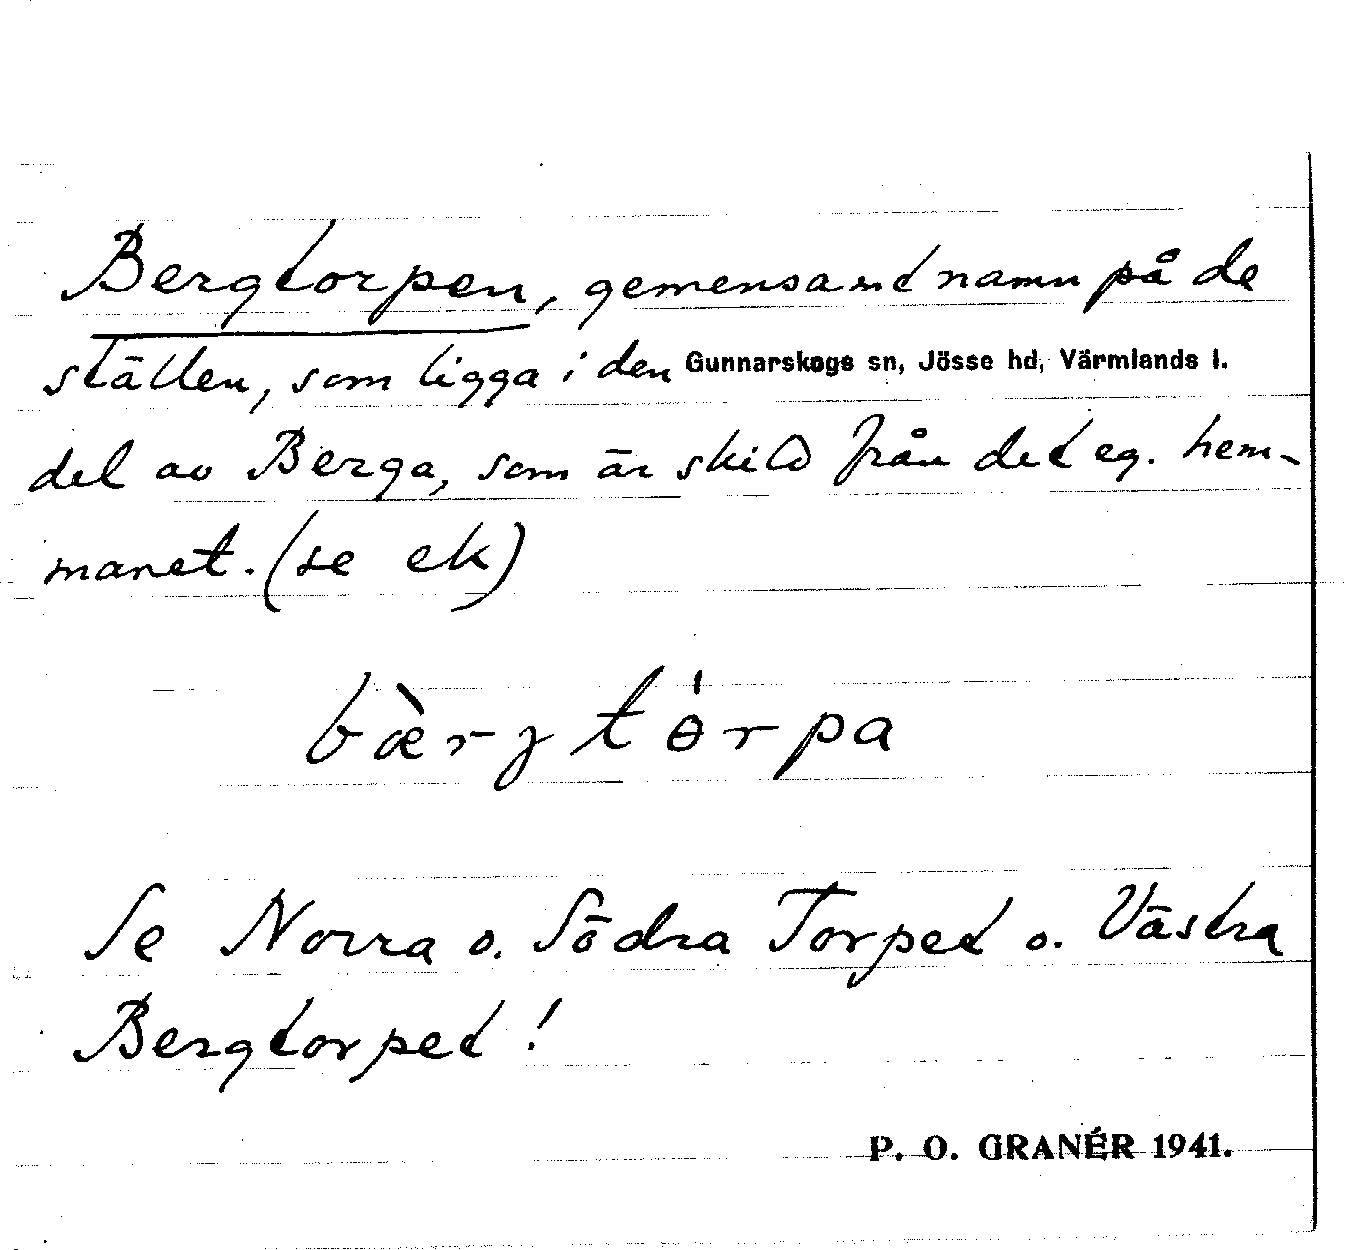 Bergtorpen, gemensamt namn på de
ställen, som ligga i den Gunnarskogs sn, Jösse hd, Värmlands l.
del av Berga, som är skild från det eg. hem-
manet. (se ek)
bæ̀rgtɵ́rpa
Se Norra o. Södra Torpet o. Västra
Bergtorpet!
P. O. GRANÉR 1941.